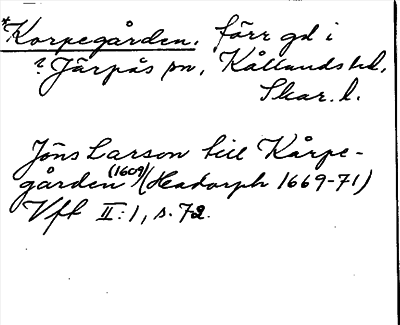 *Korpegården. förr gd i
? Järpås sn, Kållands hd,
Skar. l.
Jöns Larson till Kårpe-
gården (1609) (Hadorph 1669-71)
Vft II:1, s. 72.